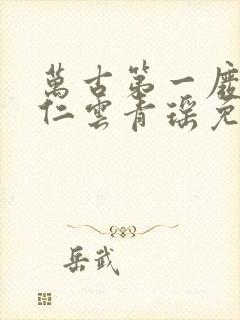 萬古第一廢
仁雲青瑤免
岳武